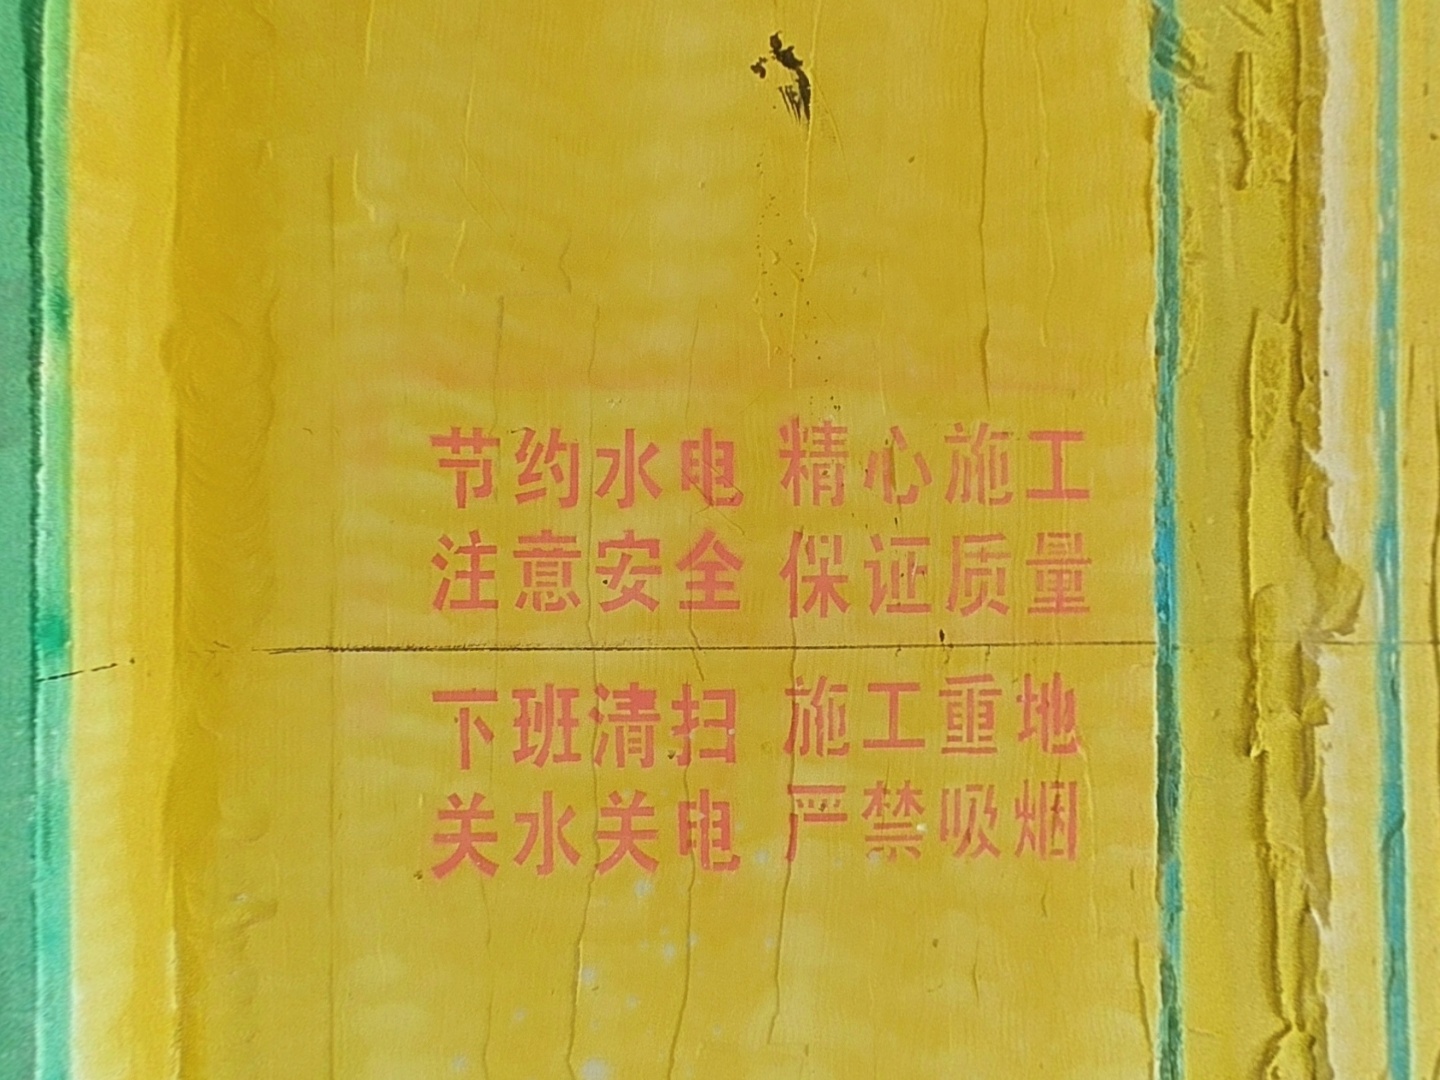 节约水电 精心施工
注意安全 保证质量
下班清扫 施工重地
关水关电 严禁吸烟